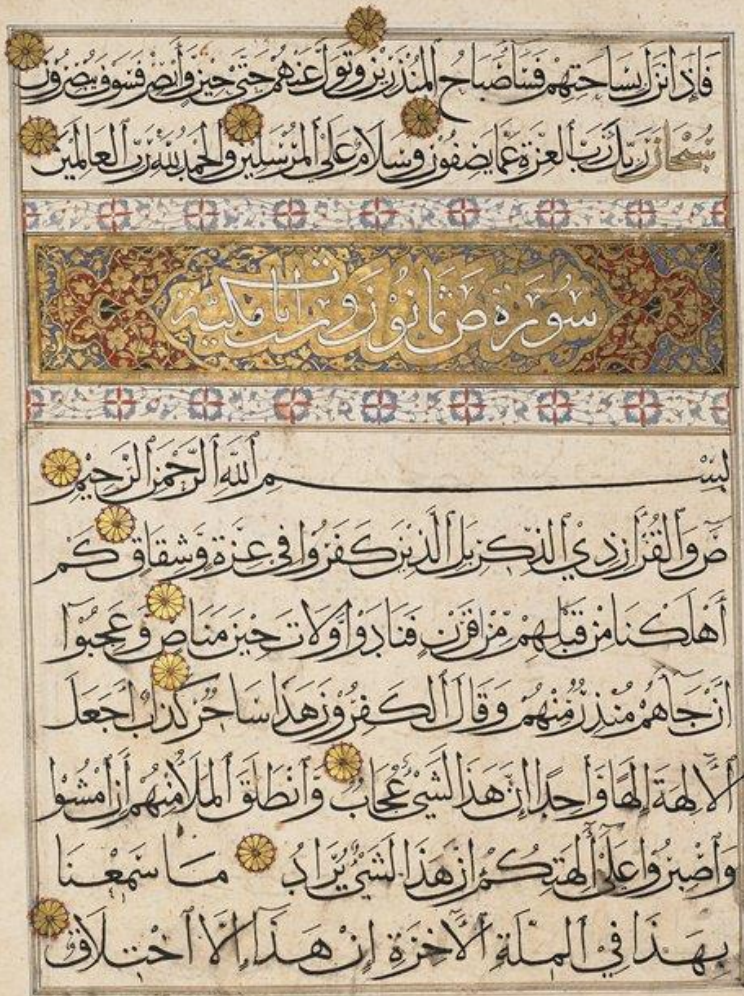 فَإِذَا نَزَلَ بِسَاحَتِهِمْ فَسَاءَ صَبَاحُ الْمُنْذَرِينَ وَتَوَلَّ عَنْهُمْ حَتَّى حِينٍ وَأَبْصِرْ فَسَوْفَ يُبْصِرُونَ
سُبْحَانَ رَبِّكَ رَبِّ الْعِزَّةِ عَمَّا يَصِفُونَ وَسَلَامٌ عَلَى الْمُرْسَلِينَ وَالْحَمْدُ لِلَّهِ رَبِّ الْعَالَمِينَ
سورة ص ثمانون وست ايات مكية
بِسْمِ اللَّهِ الرَّحْمَنِ الرَّحِيمِ
صَ وَالْقُرْآنِ ذِي الذِّكْرِ بَلِ الَّذِينَ كَفَرُوا فِي عِزَّةٍ وَشِقَاقٍ كَمْ
أَهْلَكْنَا مِنْ قَبْلِهِمْ مِنْ قَرْنٍ فَنَادَوْا وَلَاتَ حِينَ مَنَاصٍ وَعَجِبُوا
أَنْ جَاءَهُمْ مُنْذِرٌ مِنْهُمْ وَقَالَ الْكَفِرُونَ هَذَا سَاحِرٌ كَذَّابٌ أَجَعَلَ
الْآلِهَةَ إِلَهًا وَاحِدًا إِنَّ هَذَا لَشَيْءٌ عُجَابٌ وَانْطَلَقَ الْمَلَأُ مِنْهُمْ أَنِ امْشُوا
وَاصْبِرُوا عَلَى آلِهَتِكُمْ إِنَّ هَذَا لَشَيْءٌ يُرَادُ مَا سَمِعْنَا
بِهَذَا فِي الْمِلَّةِ الْآخِرَةِ إِنْ هَذَا إِلَّا اخْتِلَاقٌ